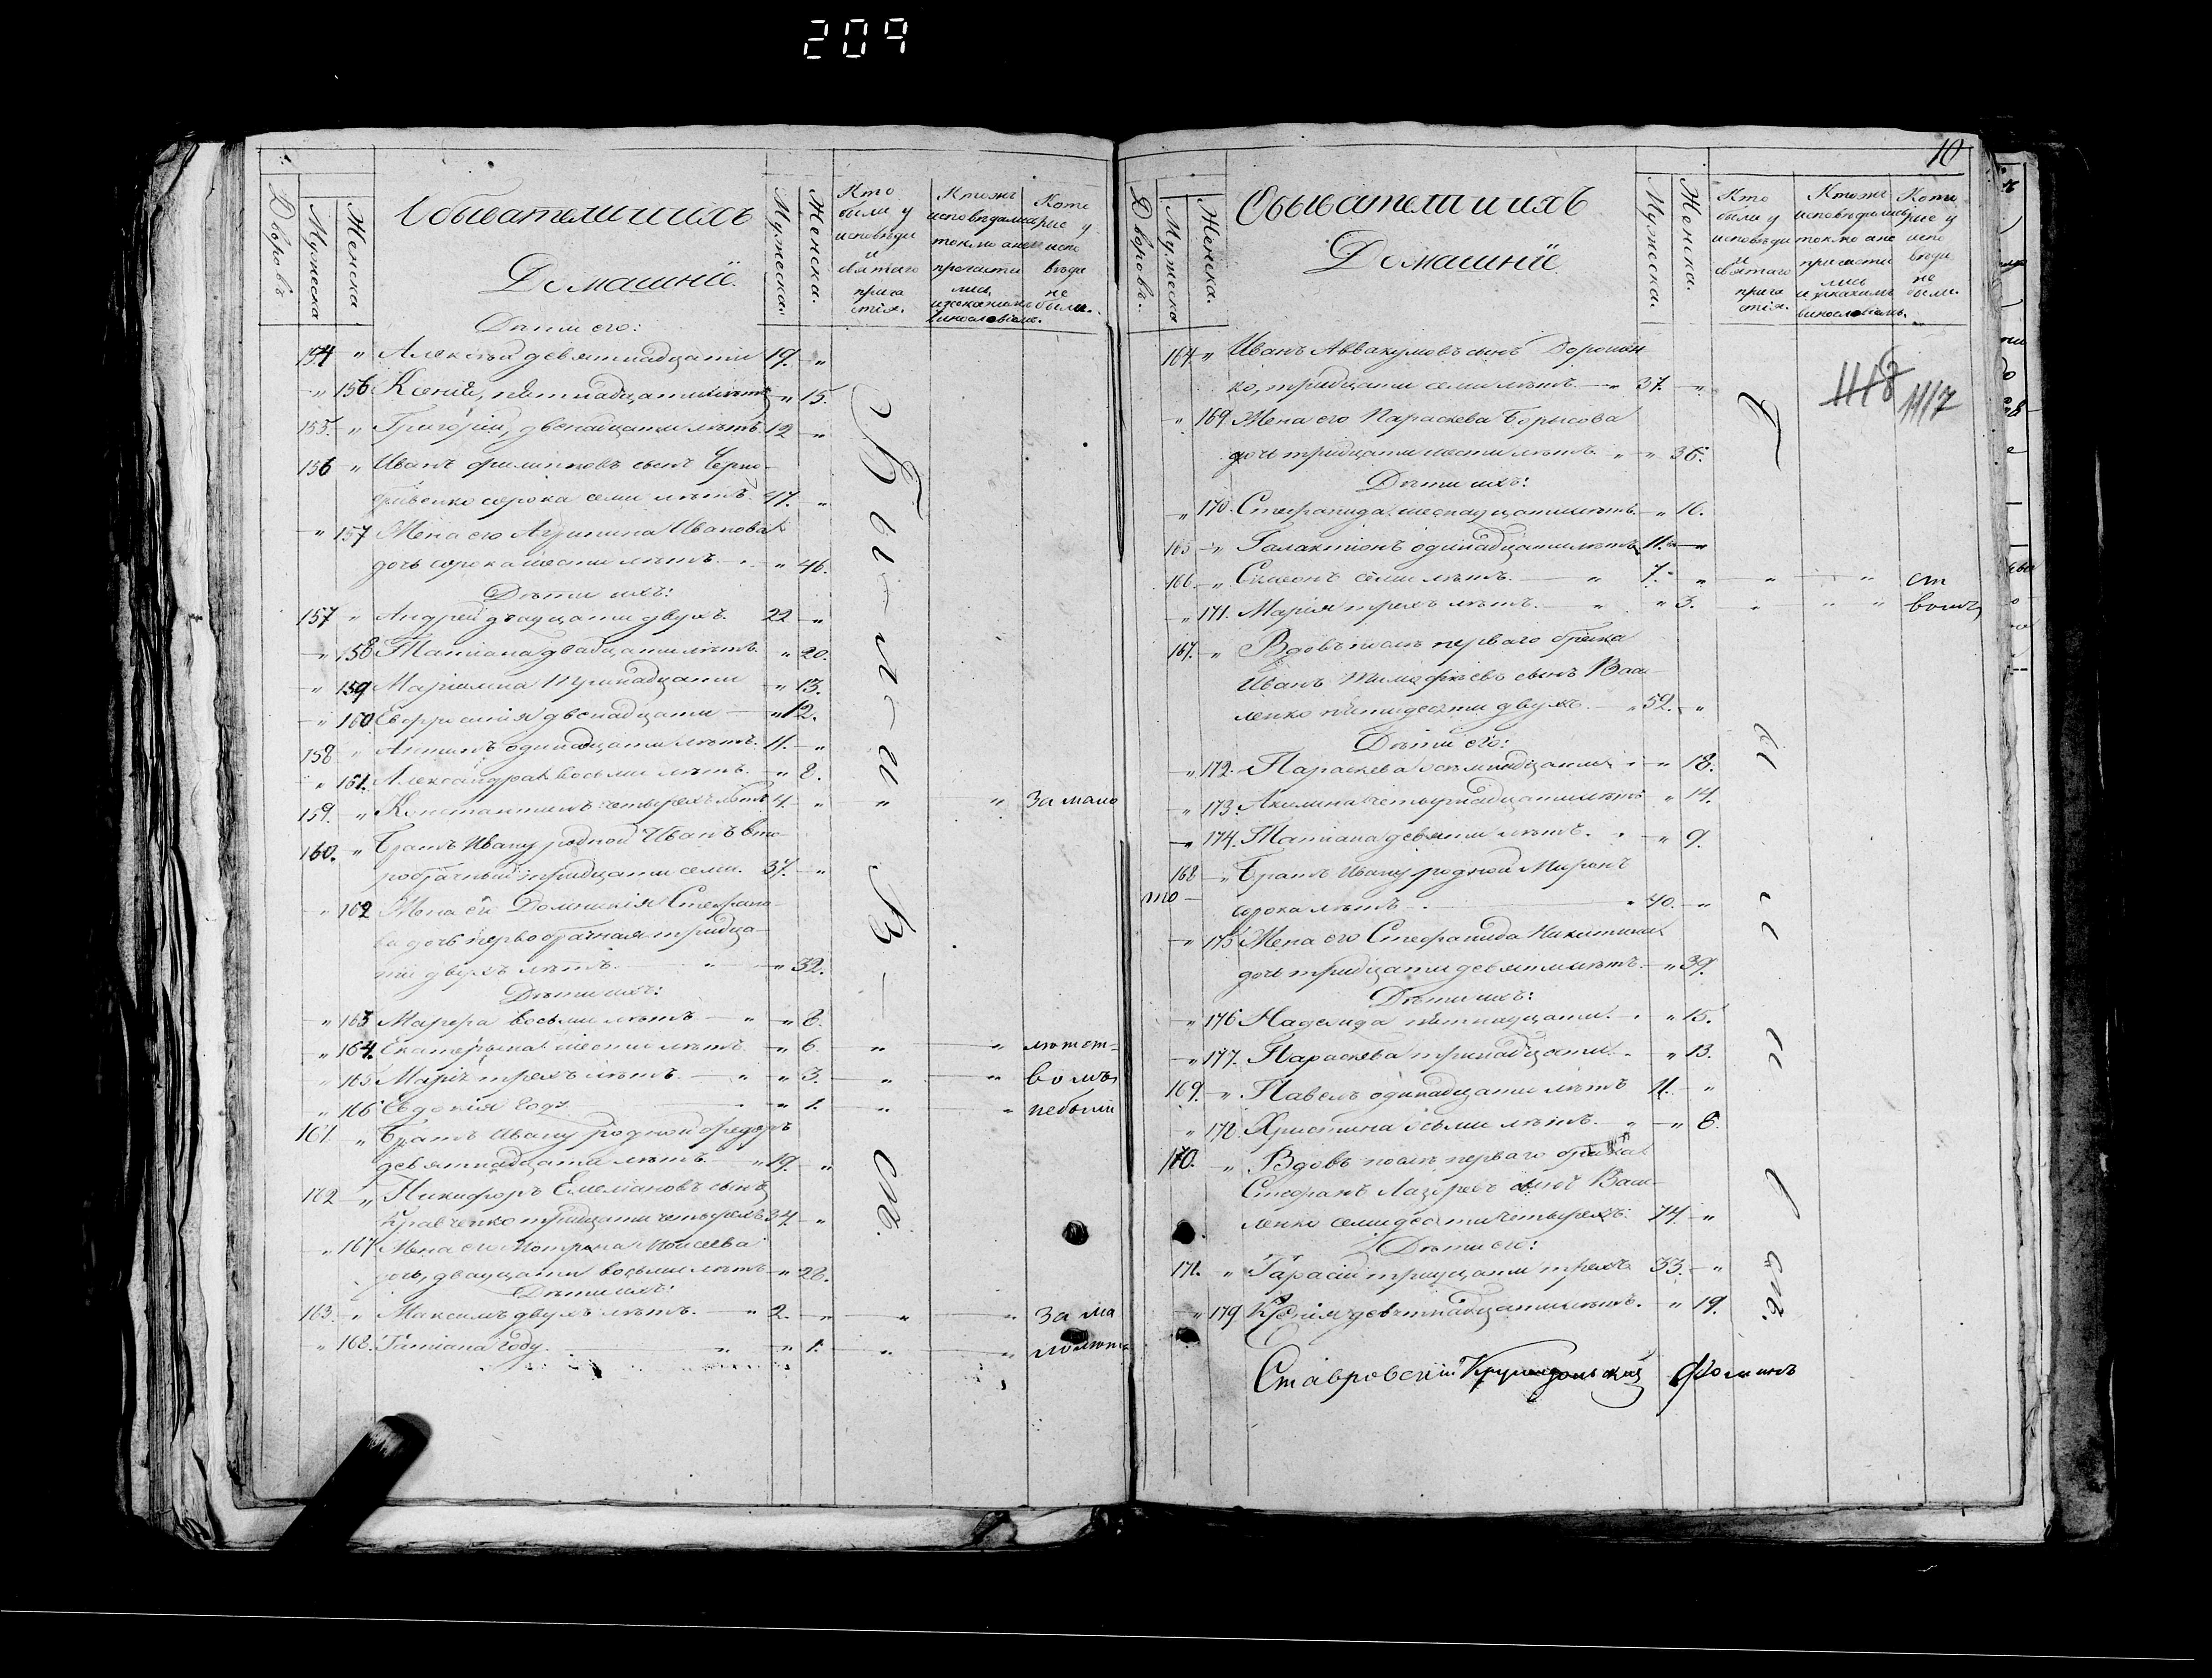 209
Дворовъ
Мужеска
Женска
Обыватели и ихъ
Домашніе.
Мужеска.
Женска.
Кто были у исповѣди и святаго прича стія.
Ктожъ исповѣдались токмо а не причасти лись, и закакимъ винословіемъ.
Кото рые у испо вѣди не были.
Дѣти его:
154 " Алексѣй девятнадцати 19. "
" 156 Ксенія, пятнадцати лѣтъ " 15.
155. " Григорій, двенадцати лѣтъ. 12 "
156 " Иванъ Филиповъ сынъ Черно-
сорока семи лѣтъ. 47. "
" 157 Жена его Агрипина Иванова
дочь сорока шести лѣтъ. " 46.
Дѣти ихъ:
157 " Андрей двадцати двухъ. 22 "
" 158 Татіана двадцати лѣтъ. " 20.
" 159 Маріамна тринадцати " 13.
" 160 Евфросинія двенадцати " 12.
158 " Антипъ одинадцати лѣтъ. 11. "
" 161. Александра восьми лѣтъ. " 8.
159. " Константинъ четырехъ лѣтъ 4. " " " За мало
160. " Братъ Ивану родной Иванъ вто-
робрачный тридцати семи. 37. "
" 162 Жена его Домникія Стефано-
ва дочь первобрачная тридца-
ти двухъ лѣтъ. " " 32.
Дѣти ихъ:
" 163 Марфа восьми лѣтъ " " 8.
" 164. Екатерина шести лѣтъ. " 6 " " лѣтст-
" 165 Марія трехъ лѣтъ. " " 3. " " вомъ
" 166 Евдокія году " 1. " " небыли
161. " Братъ Ивану родной Федоръ
девятнадцати лѣтъ. " 19. "
162 " Никифоръ Емеліановъ сынъ
Кравченко тридцати четырехъ 34. "
" 167 Жена его Мотрона Моисеева
дочь, двадцати восьми лѣтъ " 28.
Дѣти ихъ:
163. " Максимъ двухъ лѣтъ. " 2. " " " За ма
" 168. Татіана году. " " 1. " " лолѣтс
Бы-ли-и В- сѣ.
10
Дворовъ.
Мужеска
Женска.
Обыватели и ихъ
Домашніе
Мужеска.
Женска.
Кто были у исповѣди и святаго прича стія.
Ктожъ исповѣдались токмо а не причасти лись и закакимъ винословіемъ.
Кото рые у испо вѣди не были.
164 " Иванъ Аввакумовъ сынъ Дорошен
ко, тридцати семи лѣтъ. " 37. "
1118 1117
" 169 Жена его Параскева Борисова
дочь тридцати шести лѣтъ. " " 36.
Дѣти ихъ:
" 170. Стефанида шеснадцати лѣтъ. " 16.
165 " Галактіонъ одинадцати лѣтъ 11. "
166 " Симеонъ семи лѣтъ. " 7. " " " ст
" 171. Марія трехъ лѣтъ. " " 3. " " " вомъ
167. " Вдовъ послѣ перваго брака
Иванъ Тимофѣевъ сынъ Васи-
ленко пятидесяти двухъ. " 52. "
Дѣти его:
" 172. Параскева осьмнадцати " " 18.
" 173. Акилина четырнадцати лѣтъ " 14.
" 174. Татіана девяти лѣтъ. " " 9.
168 " Братъ Ивану родной Миронъ
то
сорока лѣтъ " 40. "
" 175 Жена его Стефанида Никитина
дочь тридцати девяти лѣтъ. " 39.
Дѣти ихъ:
" 176 Надежда пятнадцати. " " 15.
" 177. Параскева тринадцати. " " 13.
169. " Павелъ одинадцати лѣтъ 11. "
" 178. Христина осьми лѣтъ. " " 8.
170. " Вдовъ послѣ перваго брака
Стефанъ Лазоревъ сынъ Васи-
ленко семидесяти четырехъ. 74. "
Дѣти его:
171. " Тарасій тридцати трехъ 33. "
" 179 Ксенія девятнадцати лѣтъ. " 19.
Ставровскій Фоминъ